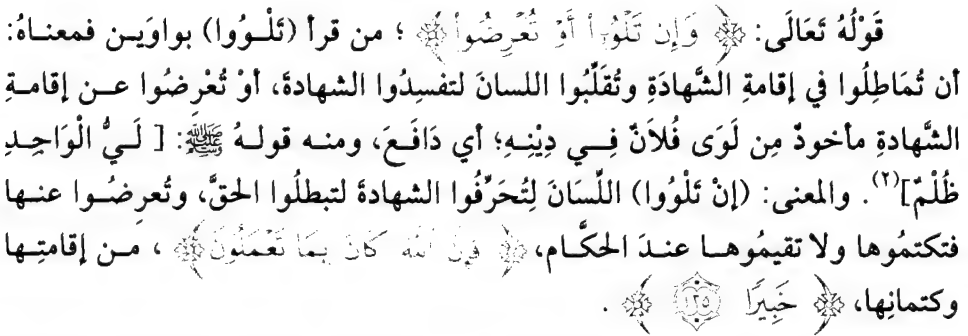 قَوْلُهُ تَعَالَى: ﴿ وَإِن تَلْوُۥٓاْ أَوْ تُعْرِضُواْ ﴾ ؛ من قرأ (تَلْـوُوا) بواوَيـن فمعنـاهُ:
أن تُمَاطِلُوا في إقامةِ الشَّهادَةِ وتُقَلِّبُوا اللسانَ لتفسِدُوا الشهادةَ، أوْ تُعْرِضُوا عــن إقامــةِ
الشَّهادةِ مأخوذٌ مِن لَوَى فُلاَنٌ فِــي دِيْنِـهِ؛ أي دَافَـعَ، ومنـه قولـهُ ﷺ: [ لَـيُّ الْوَاجِـدِ
ظُلْمٌ](٢). والمعنى: (إنْ تَلْوُوا) اللِّسَانَ لِتُحَرِّفُوا الشهادةَ لتبطلُوا الحقَّ، وتُعرِضُـوا عنـها
فتكتمُوها ولا تقيمُوهـا عنـدَ الحكَّـام، ﴿ فَإِنَّ ٱللَّهَ كَانَ بِمَا تَعْمَلُونَ ﴾ ، مـن إقامتِـها
وكتمانِها، ﴿ خَبِيرًا ١٣٥ ﴾ .